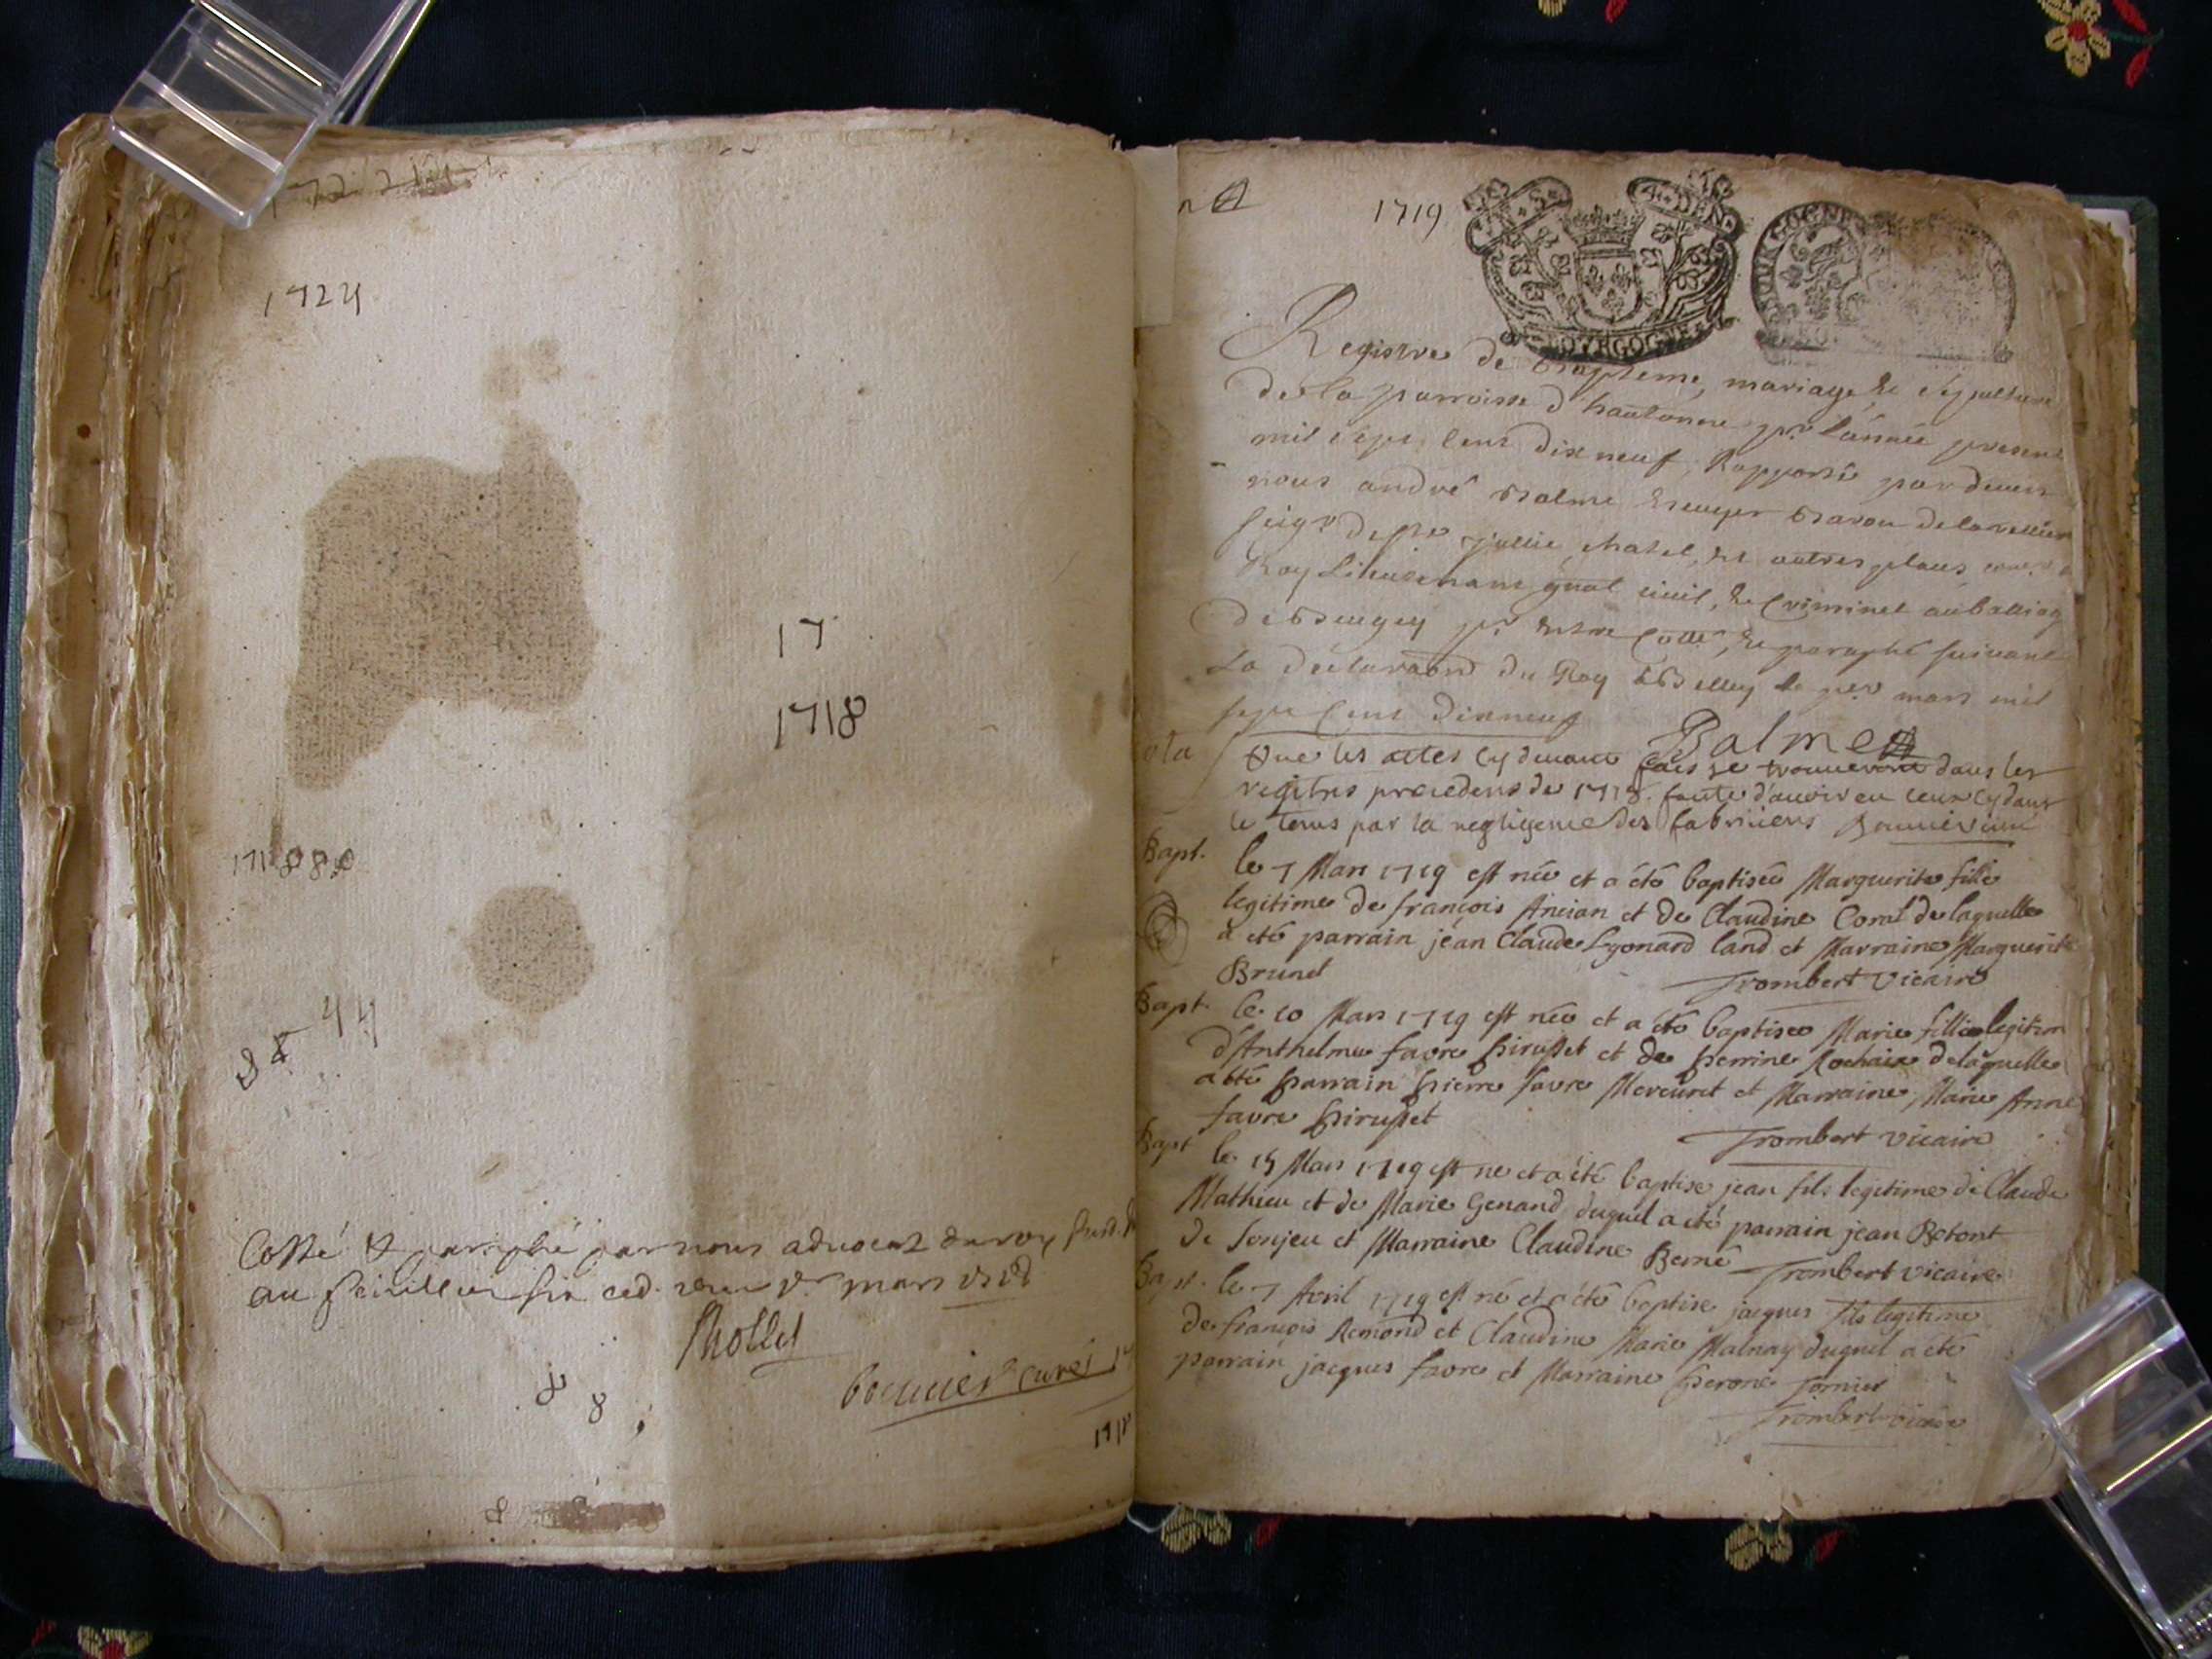 1724
17
1718
171888
44
Cotté & paraphé par nous advocat du roy
au
Mollet
bonnier curé
8
8
1718
1719
4. DEN.
BOVRGOGNE
BOURGOGNE
Registre de Bapteme, mariage, & sepulture
de la parroisse d'hautonne pr l'année presente
mil sept cens dix neuf, Rapporté pardevant
nous andré Balme Escuyer Baron de
seigr de Ste jullie, chatel, et autres places
Roy Lieutenant gnal civil, & Criminel au balliage
de Beugey pr estre Cotté, & paraphé suivant
La declaraôn du Roy à Belley le per mars mil
sept cens dixneuf
Balme
ota que les actes cy devant fais se trouveront dans les
regitres precedens de 1718. faute d'avoir eu ceux cy dans
le tems par la negligence des fabriciens
Bapt. le 7 Mars 1719 est née et a été baptiseé Marguerite fille
legitime de françois Ancian et de Claudine Coral de laquelle
a eté parrain jean Claude Lyonard land et Marraine Marguerite
Brunet Trombert vicaire
Bapt. le 10 Mars 1719 est née et a été baptiseé Marie fille legitim
d'Anthelme favre Pirusset et de Perrine Rochaix de laquelle
a été Parrain Pierre favre Mercuret et Marraine Marie Anne
favre Pirusset Trombert vicaire
Bapt le 15 Mars 1719 est ne et a été baptise jean fils legitime de Claude
Mathieu et de Marie Genand duquel a eté parrain jean Betont
de Sonjeu et Marraine Claudine Berne Trombert vicaire
Bapt. le 7 Avril 1719 est né et a été baptise jacques fils legitime
de françois Remond et Claudine Marie Malnay duquel a eté
parrain jacques favre et Marraine Perone Tornier
Trombert vicaire